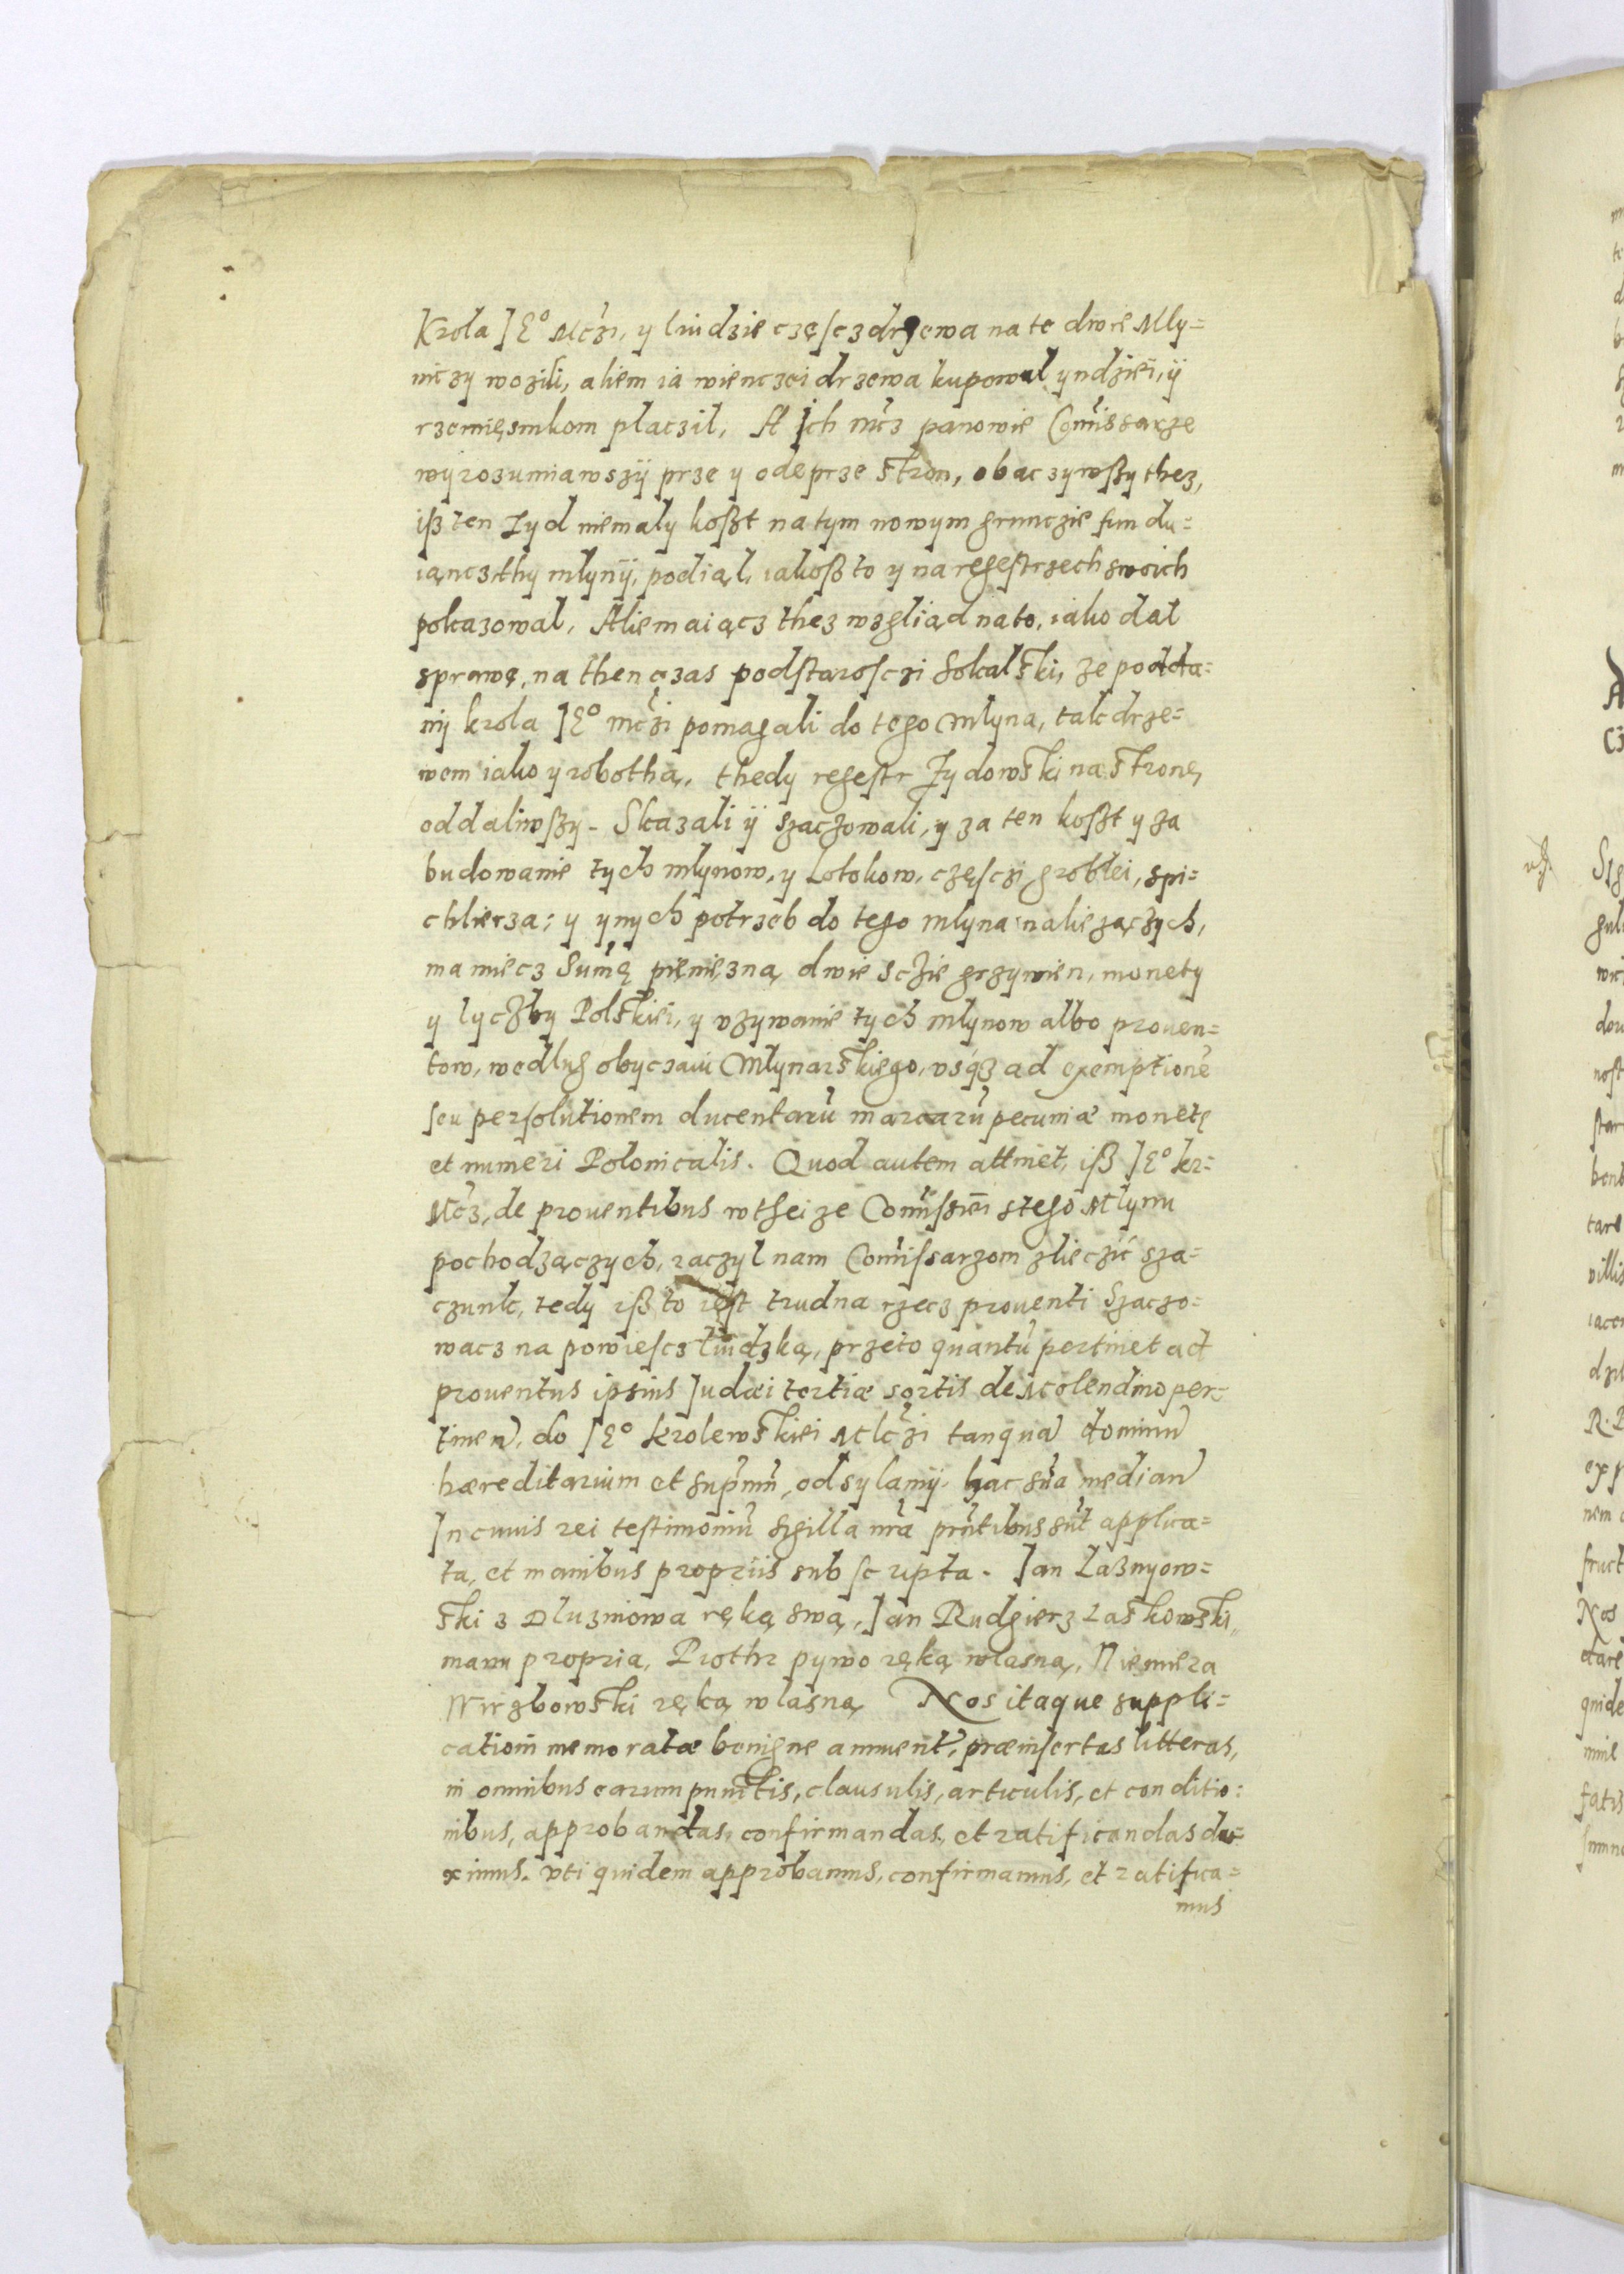 Krola JE° Mczi, y liudzie częscz drzewa na te dwie Mly=
niczy wozili, aliem ia wienczei drzewa kupowal yndziei, ÿ
rzemięsnikom placzil, A Jch mcz panowie Comissarze
wyrozumiawszÿ prze y odeprze stron, obaczywßy thez,
iß ten Zyd niemaly koßt na tym nowym grunczie fundu=
iąncz thy mlynÿ, podiąl, iakoß to y na regestrzech swoich
pokazowal, Aliem aiącz thez wzgliąd na to, iako dal
sprawę, na then czas podstarosczi Sokalski, ze poddа=
nij krola JE° mczi pomagali do tego mlyna, tak drze=
wem iako y robothą, thedy regestr Zydowski na stronę
oddaliwßy - Skazali ÿ szaczowali, y za ten koßt y za
budowanie tych mlynow, y Lotokow, częsczi groblei, spi=
chlierza; y ynych potrzeb do tego mlyna naliezączych,
ma miecz Sumę pięnięzną dwie sczie grzywien, monety
y lyczby Polskiei, y vzywanie tych mlynow albo prouen=
tow, wedlug obyczaiu Mlynarskiego, vsq3 ad exemptionē
seu persolutionem ducentarū marcarū pecuniæ monetę
et numeri Polonicalis. Quod autem attinet, iß JE° kr=
Mcz, de prouentibus w thei ze Comissiei s tego Mlynu
pochodzączych, raczyl nam Comissarzom zlieczić sza=
czunk, tedy iß to iest trudna rzecz prouenti Szaczo=
wacz na powiescz liudzką, przeto quantū pertinet ad
prouentus ipsius Judæi tertiæ sortis de Molendino per=
tinen, do JE° krolewskiei Mlczi tanquā dominū
hæreditarium et supmū, odsylamÿ. hac sua median
Jn cuius rei testimoniū sigilla nra prntibus sūt applica=
ta, et manibus propriis subscripta. Jan Laznyow=
ski z Dluzniowa ręką swą, Jan Rudgierz Laskowski
manu propria, Piothr pywo ręką wlasną, Niemiera
Wirzbowski ręką wlasną Nos itaque suppli=
cationi memoratæ benigne annuent, præinsertas litteras,
in omnibus earum punctis, clausulis, articulis, et conditio:
nibus, approbandas, confirmandas, et ratificandas du=
ximus. vti quidem approbamus, confirmamus, et ratifica=
mus